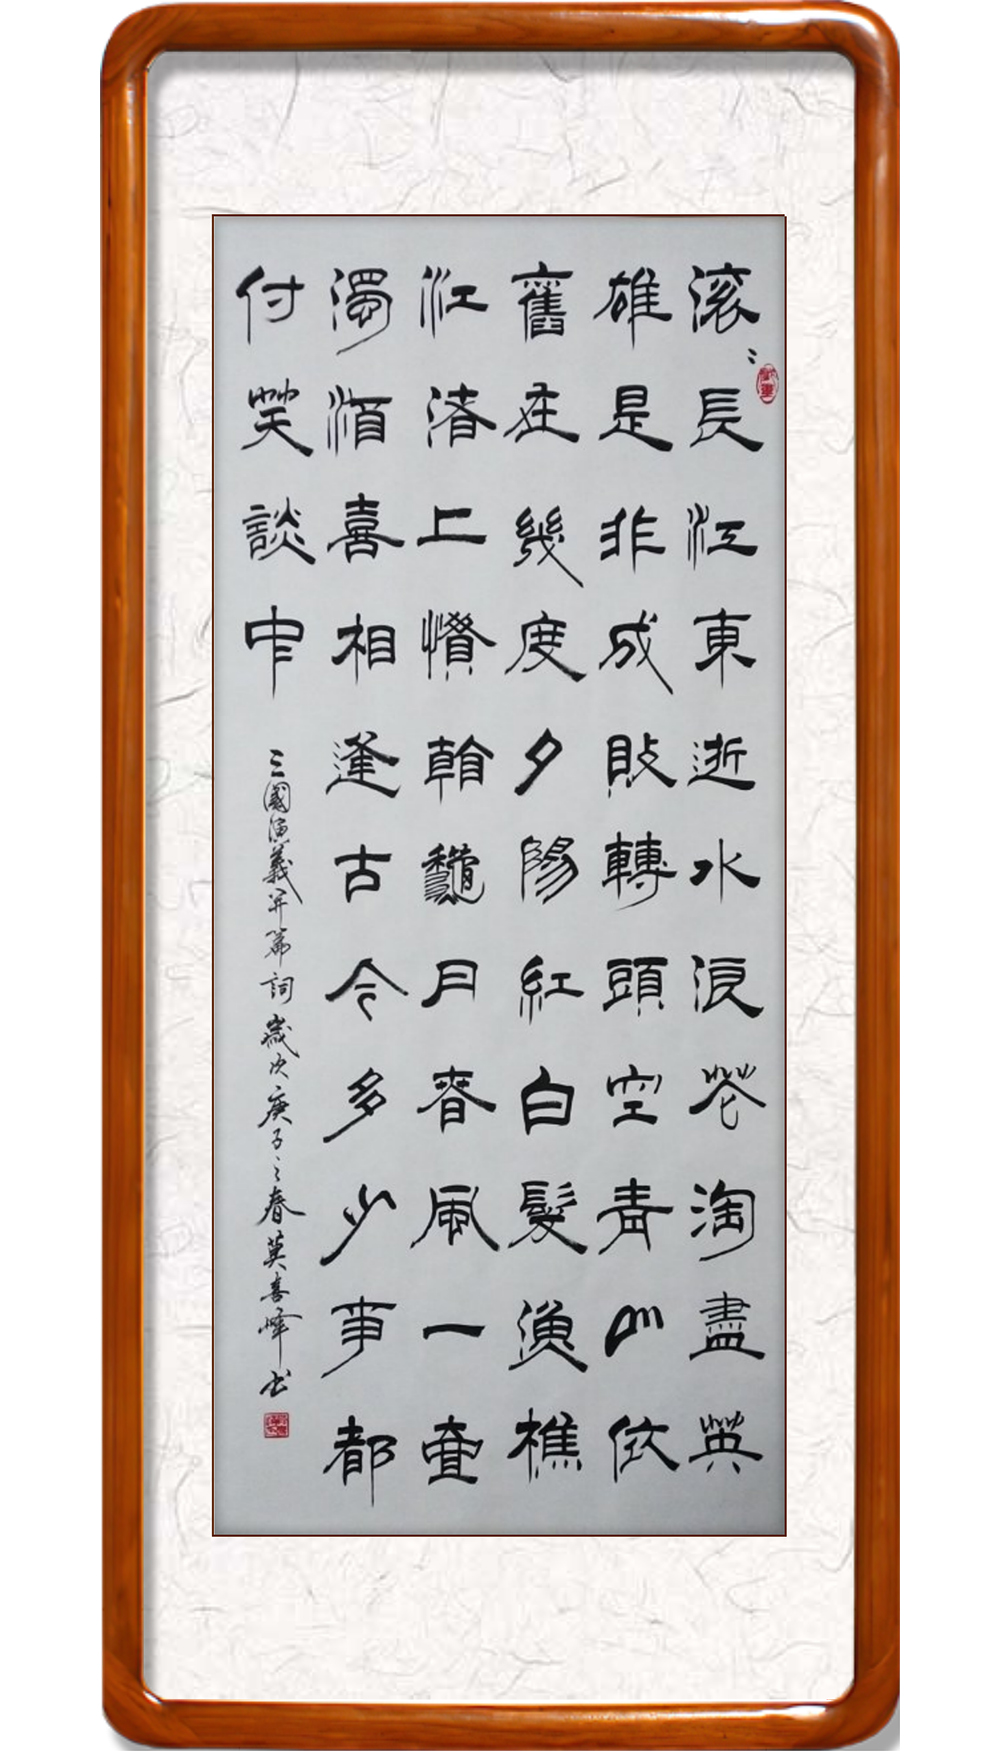 滚〻長江東逝水浪花淘盡英
雄是非成敗轉頭空青山依
舊在幾度夕陽紅白髮漁樵
江渚上慣看龝月春風一壷
濁酒喜相逢古今多少事都
付笑談中
三國演義开篇詞 歲次庚子之春莫喜峰书